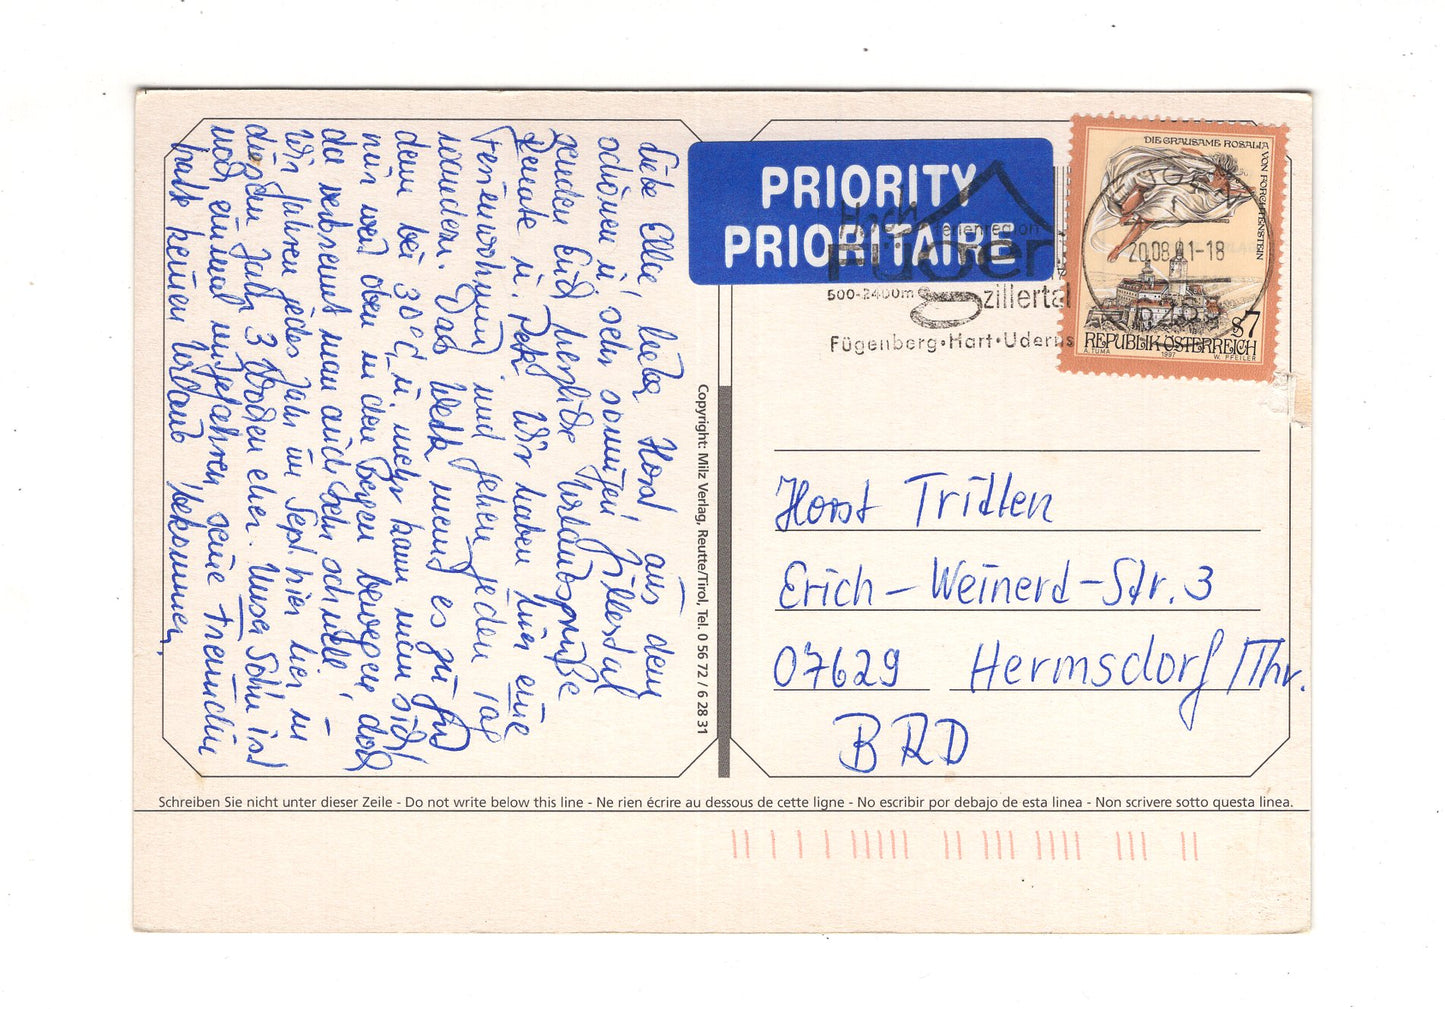 Liebe Elke, lieber Horst, aus dem
schönen u. sehr sonnigen Zillertal
senden Euch herzliche Urlaubsgrüße
Renate u. Petr. Wir haben hier eine
Ferienwohnung und gehen jeden Tag
wandern. Das Wetter meint es zu gut
denn bei 30°C u. mehr kann man sich
nur weit oben in den Bergen bewegen, doch
da verbrennt man auch sehr schnell! –
Wir fahren jedes Jahr im Sept. hier her, in
diesem Jahr 3 Wochen eher. Unser Sohn ist
noch einmal mitgefahren, seine Freundin
hatte keinen Urlaub bekommen.
Copyright: Milz Verlag, Reutte/Tirol, Tel. 0 56 72 / 6 28 31
PRIORITY
PRIORITAIRE
Hoch
ferienregion
Fügen
500-2400m
zillertal
Fügenberg•Hart•Uderns
20.08.01-18
DIE GRAUSAME ROSALIA VON FORCHTENSTEIN
S7
REPUBLIK ÖSTERREICH
A. TUMA 1997 W. PFEILER
Horst Tritten
Erich-Weinert-Str. 3
07629 Hermsdorf/Thr.
BRD
Schreiben Sie nicht unter dieser Zeile - Do not write below this line - Ne rien écrire au dessous de cette ligne - No escribir por debajo de esta linea - Non scrivere sotto questa linea.